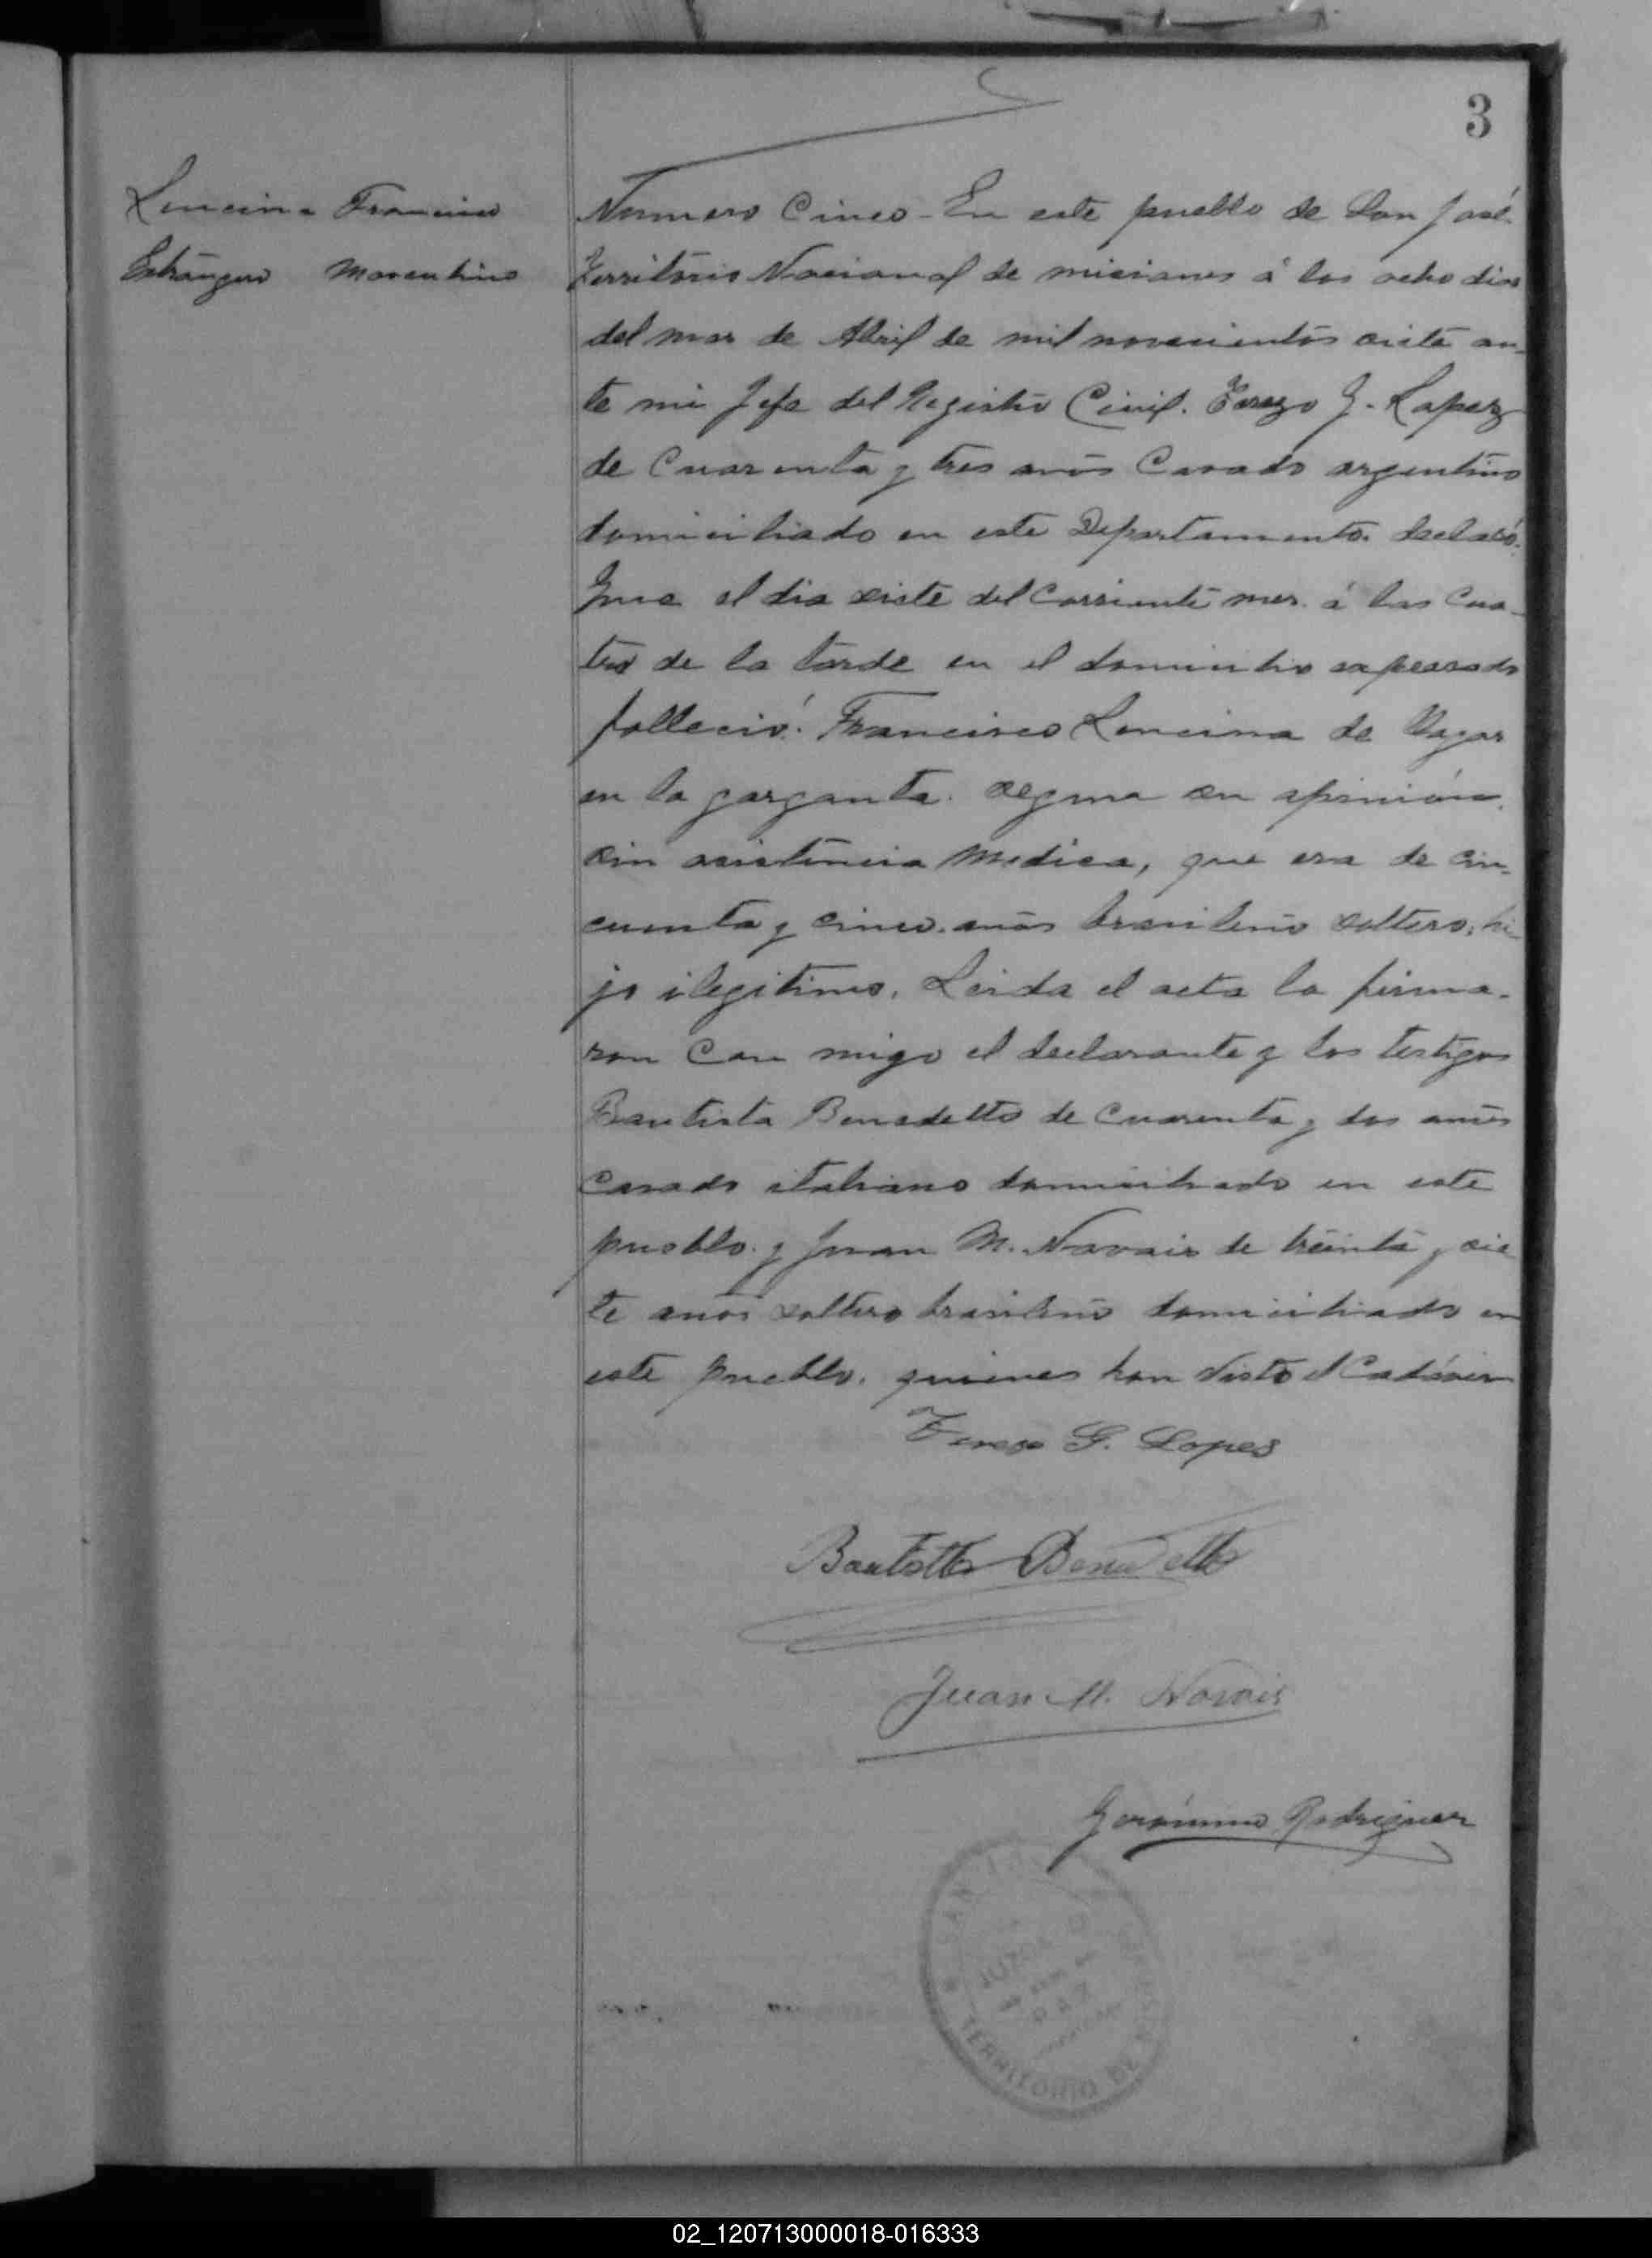 3
Lencina Francisco
Estrangero Masculino
Numero Cinco - En este pueblo de San José
Territorio Nacional de misiones á los ocho dias
del mes de Abril de mil novecientos siete an-
te mi Jefe del Registro Civil. G. Lopez
de Cuarenta y tres anõs Casado argentino
domiciliado en este Departamento. declaró.
Que el dia siete del Corriente mes. á las Cua-
tro de la tarde en el domicilio expresado
falleció. Francisco Lencina de llagas
en la garganta. segun su opinión.
sin asistencia Medica, que era de cin-
cuenta y cinco anõs brasileño soltero, hi-
jo ilegitimo. Leida el acta la firma-
ron Con migo el declarante y los testigos
Bautista Benedetto de Cuarenta y dos anõs
Casado italiano domiciliado en este
pueblo. y Juan M. Novais de treinta y sie
te anõs soltero brasileño domiciliado en
este pueblo. quienes han visto el Cadáver
G. Lopes
Bautista Benedetto
Juan M. Novais
Gerónimo Rodriguez
TERRITORIO DE
02_120713000018-016333